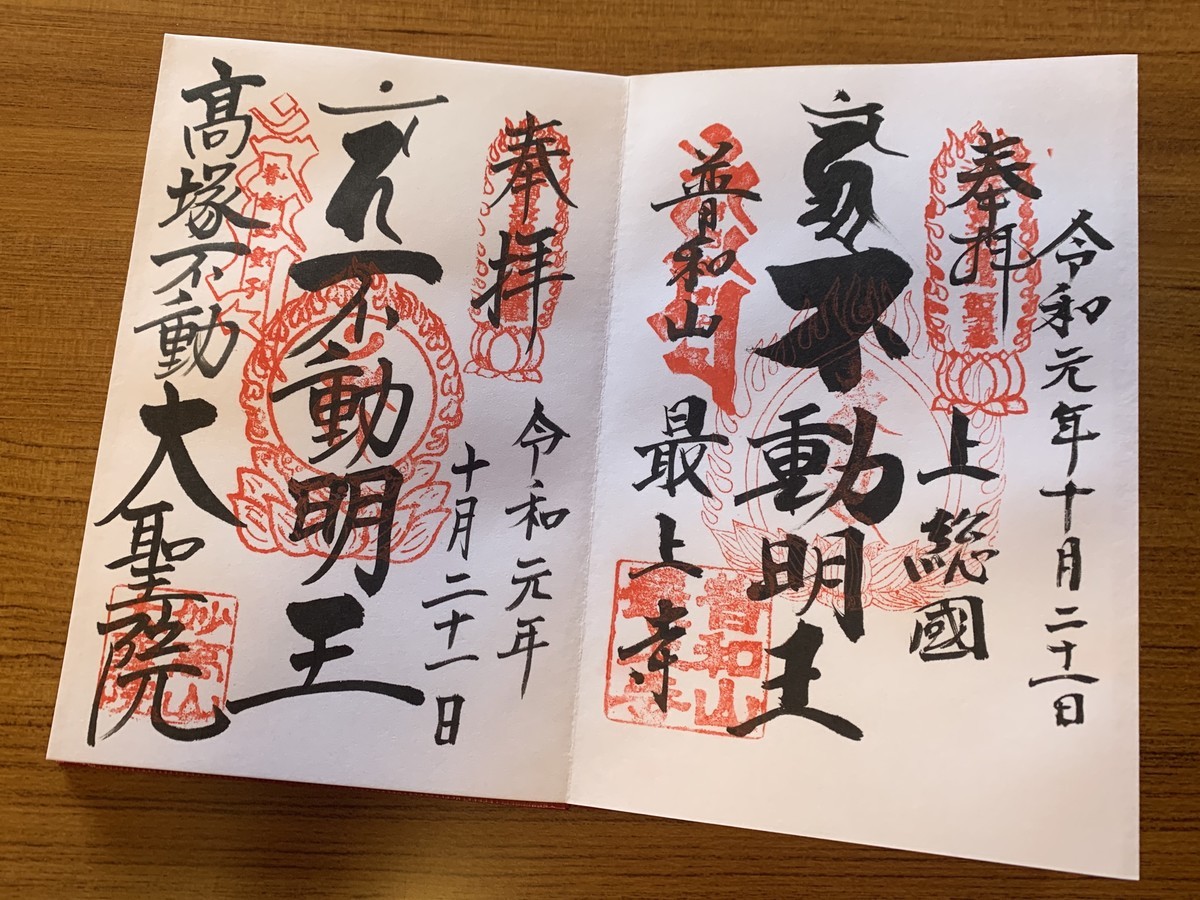 令和元年十月二十一日
奉拝
上総國
不動明王
普和山
最上寺
普和山
奉拝
令和元年
十月二十一日
不動明王
高塚不動
大聖院